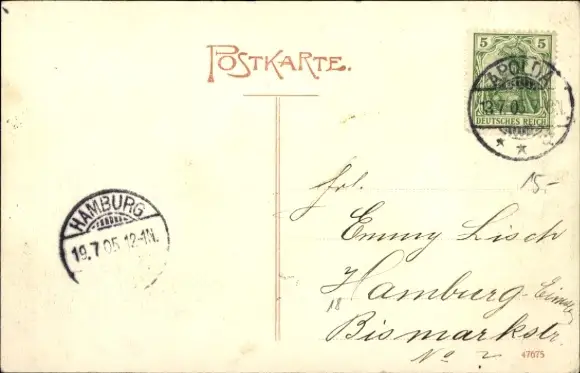 POSTKARTE.
5 5
DEUTSCHES REICH
APOLDA
HAMBURG
19.7.05.12-1N.
15-
Frl.
Emmy Lisch
Hamburg-
18
Bismarkstr.
No 2
47675